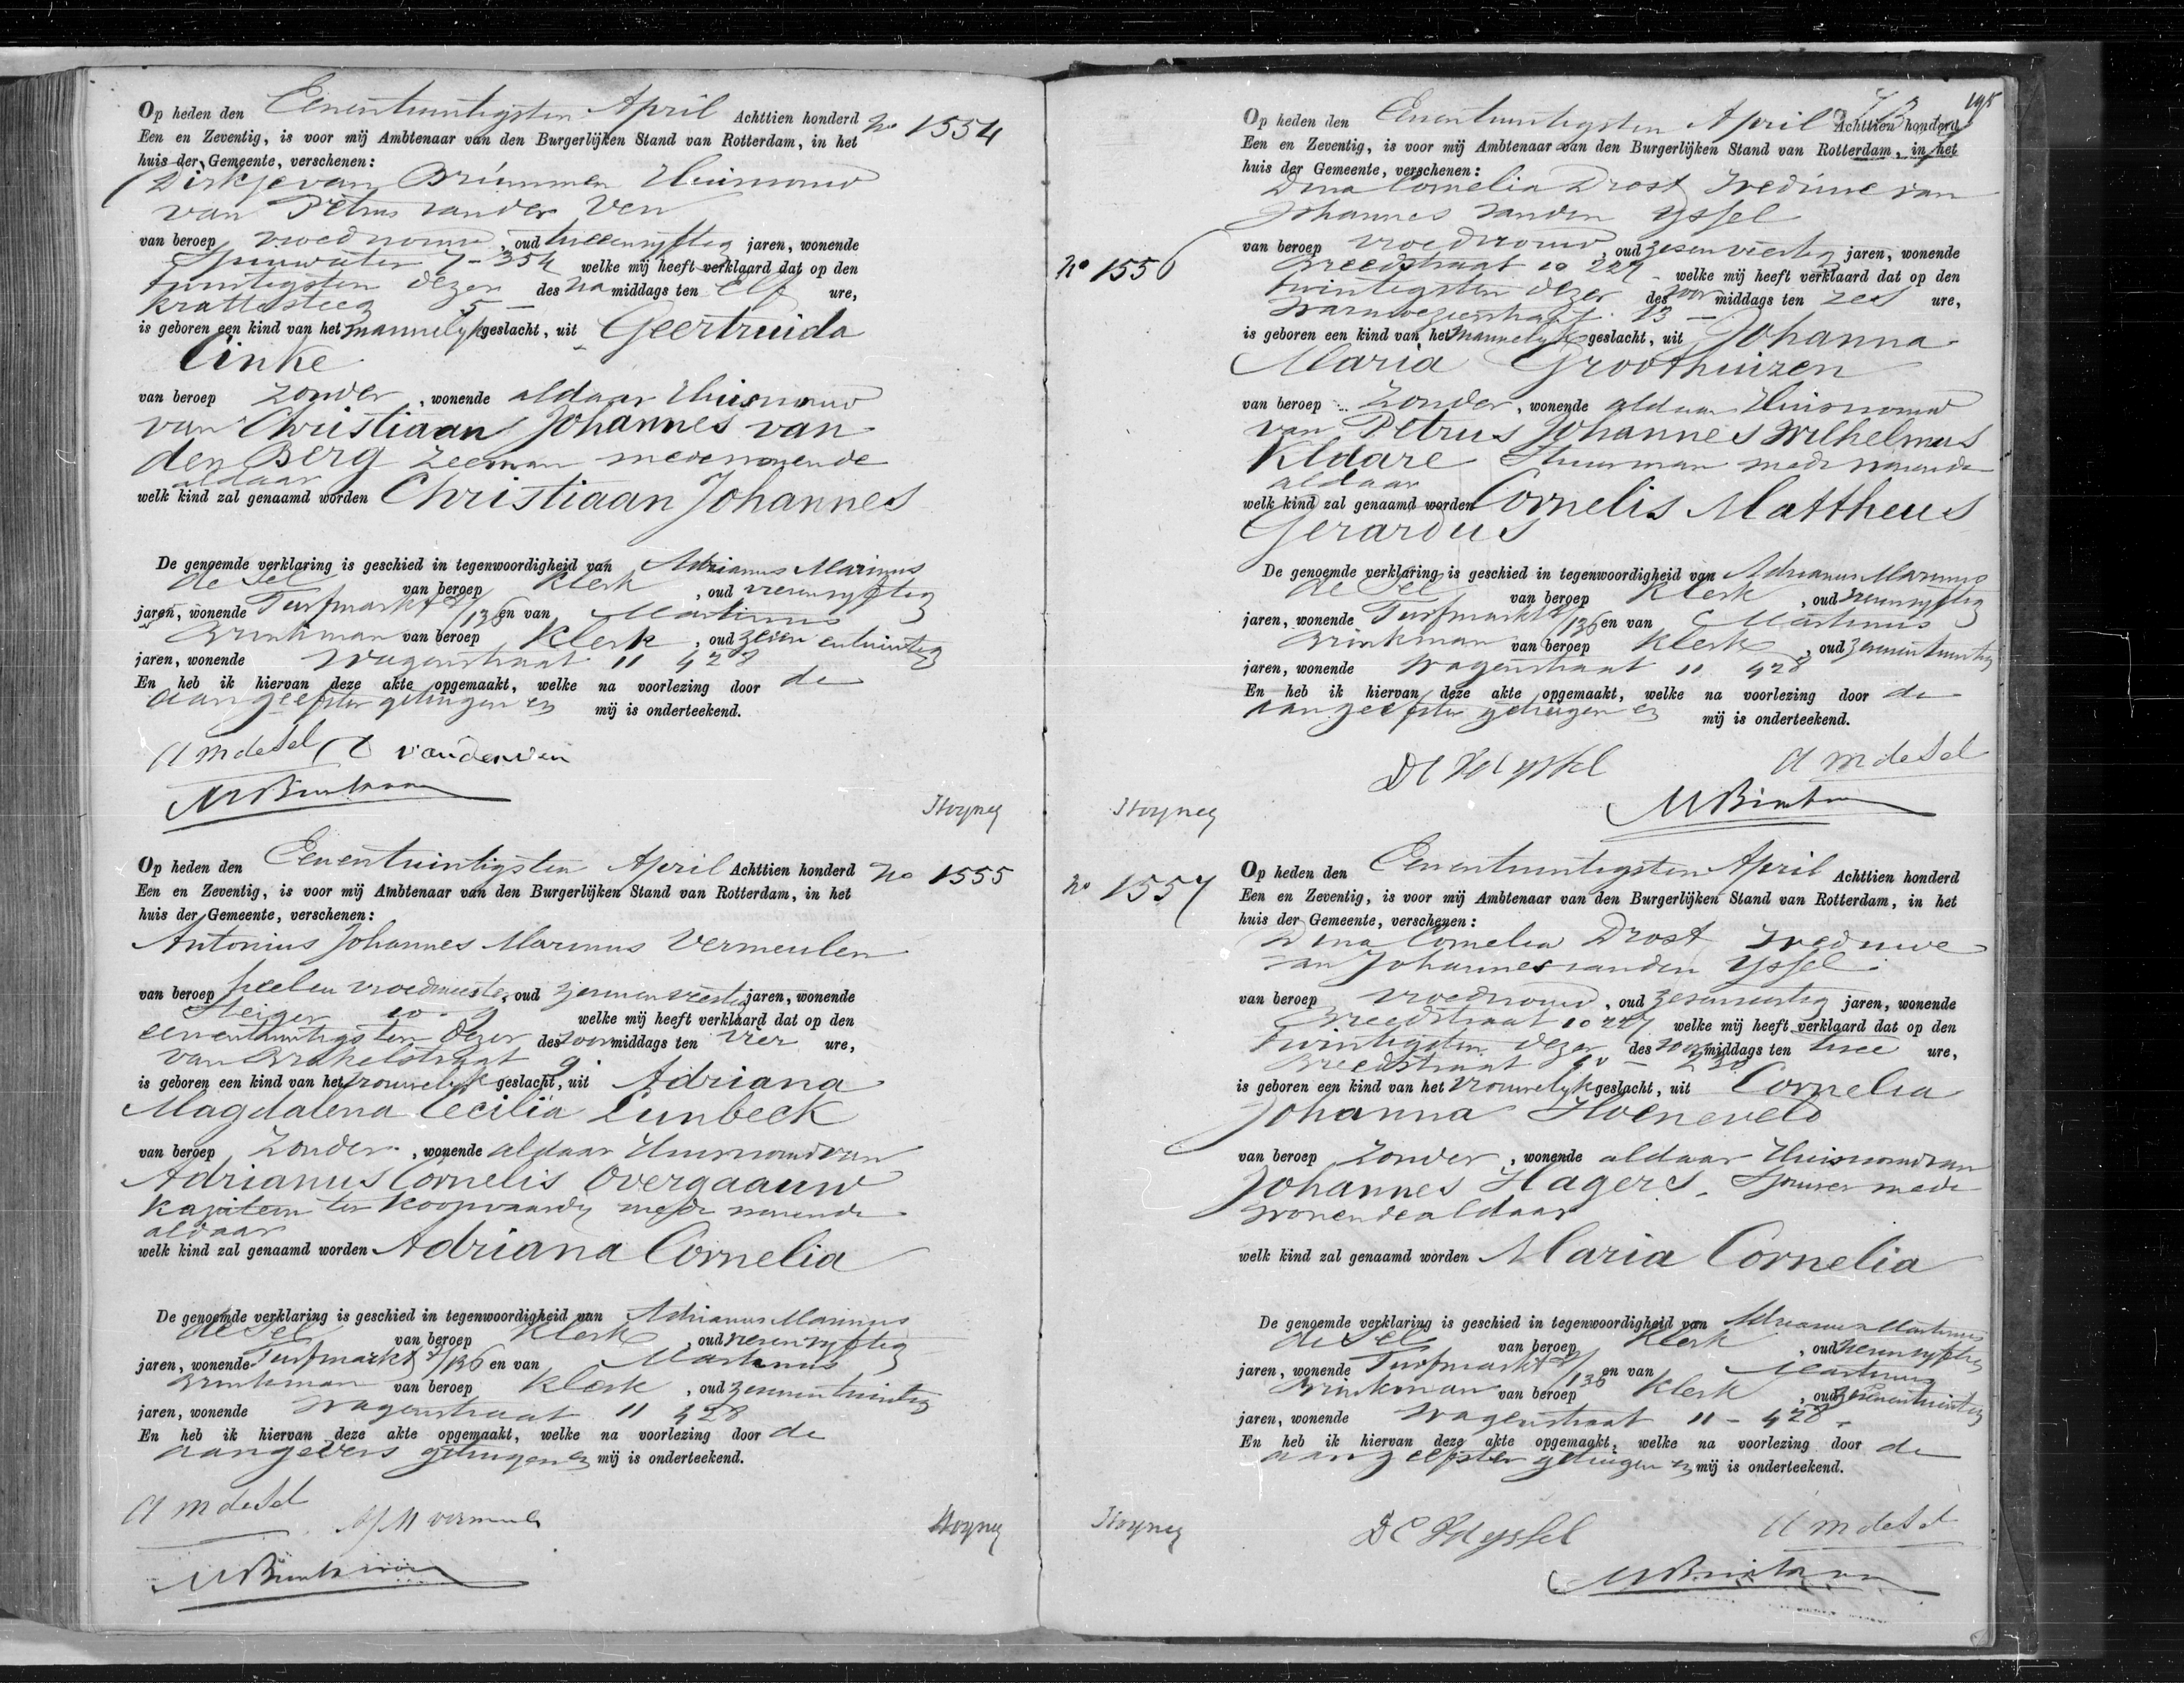 Op heden den Eenentwintigsten April Achttien honderd No 1554
Een en Zeventig, is voor mij Ambtenaar van den Burgerlijken Stand van Rotterdam, in het
huis der Gemeente, verschenen:
Dirkje van Brummen Huisvrouw
van Petrus van der Ven
van beroep vroedvrouw, oud tweeenvijftig jaren, wonende
Spuiwater 7-354 welke mij heeft verklaard dat op den
twintigsten dezer des namiddags ten elf ure,
Krattesteeg 5
is geboren een kind van het mannelijk geslacht, uit Geertruida
Linke
van beroep zonder, wonende aldaar Huisvrouw
van Christiaan Johannes van
den Berg zeeman medewonende
aldaar
welk kind zal genaamd worden Christiaan Johannes
De genoemde verklaring is geschied in tegenwoordigheid van Adrianus Marinus
de Sel van beroep Klerk, oud
jaren, wonende Turfmarkt 2/136 en van Martinus
Brinkman van beroep Klerk, oud zevenentwintig
jaren, wonende Wagenstraat 11 428
En heb ik hiervan deze akte opgemaakt, welke na voorlezing door de
aangeefster getuigen en mij is onderteekend.
A M de Sel vanderven
M Brinkman
Op heden den Eenentwintigsten April Achttien honderd No 1555
Een en Zeventig, is voor mij Ambtenaar van den Burgerlijken Stand van Rotterdam, in het
huis der Gemeente, verschenen:
Antonius Johannes Marinus Vermeulen
van beroep heel en vroedmeester, oud zevenenveertig jaren, wonende
Steiger 10-9 welke mij heeft verklaard dat op den
eenentwintigsten dezer des voormiddags ten vier ure,
van Brakelstraat 9
is geboren een kind van het vrouwelijk geslacht, uit Adriana
Magdalena Cecilia Lunbeck
van beroep zonder, wonende aldaar Huisvrouw van
Adrianus Cornelis Overgaauw
Kapitein ter koopvaardij mede wonende
aldaar
welk kind zal genaamd worden Adriana Cornelia
De genoemde verklaring is geschied in tegenwoordigheid van Adrianus Marinus
de Sel van beroep Klerk, oud
jaren, wonende Turfmarkt 2/136 en van Martinus
Brinkman van beroep Klerk, oud zevenentwintig
jaren, wonende Wagenstraat 11 428
En heb ik hiervan deze akte opgemaakt, welke na voorlezing door de
aangevers getuigen en mij is onderteekend.
A M de Sel
M Brinkman
195
Op heden den Eenentwintigsten April Achttien honderd
Een en Zeventig, is voor mij Ambtenaar van den Burgerlijken Stand van Rotterdam, in het
huis der Gemeente, verschenen:
Dina Cornelia Drost Weduwe van
Johannes van den Yssel
No 1556 van beroep vroedvrouw, oud zesenveertig jaren, wonende
Breedstraat 10 227 welke mij heeft verklaard dat op den
twintigsten dezer des voormiddags ten zes ure,
13
is geboren een kind van het mannelijk geslacht, uit Johanna
Maria Groothuizen
van beroep zonder, wonende aldaar Huisvrouw
van Petrus Johannes Wilhelmus
Kldare Stuurman mede wonende
aldaar
welk kind zal genaamd worden Cornelis Mattheus
Gerardus
De genoemde verklaring is geschied in tegenwoordigheid van Adrianus Marinus
de Sel van beroep Klerk, oud
jaren, wonende Turfmarkt 2/136 en van Martinus
Brinkman van beroep Klerk, oud zevenentwintig
jaren, wonende Wagenstraat 11 428
En heb ik hiervan deze akte opgemaakt, welke na voorlezing door de
aangeefster getuigen en mij is onderteekend.
A M de Sel
M Brinkman
Op heden den Eenentwintigsten April Achttien honderd
No 1557 Een en Zeventig, is voor mij Ambtenaar van den Burgerlijken Stand van Rotterdam, in het
huis der Gemeente, verschenen:
Dina Cornelia Drost Weduwe
van Johannes van den Yssel
van beroep vroedvrouw, oud zesenveertig jaren, wonende
Breedstraat 10 227 welke mij heeft verklaard dat op den
twintigsten dezer des voormiddags ten twee ure,
Breedstraat 10 - 230
is geboren een kind van het vrouwelijk geslacht, uit Cornelia
Johanna Hoeneveld
van beroep zonder, wonende aldaar Huisvrouw van
Johannes Hagers, Sjouwer mede
wonende aldaar
welk kind zal genaamd worden Maria Cornelia
De genoemde verklaring is geschied in tegenwoordigheid van Adrianus Martinus
de Sel van beroep Klerk, oud
jaren, wonende Turfmarkt 2/136 en van Martinus
Brinkman van beroep Klerk, oud zevenentwintig
jaren, wonende Wagenstraat 11 - 428
En heb ik hiervan deze akte opgemaakt, welke na voorlezing door de
aangeefster getuigen en mij is onderteekend.
A M de Sel
M Brinkman